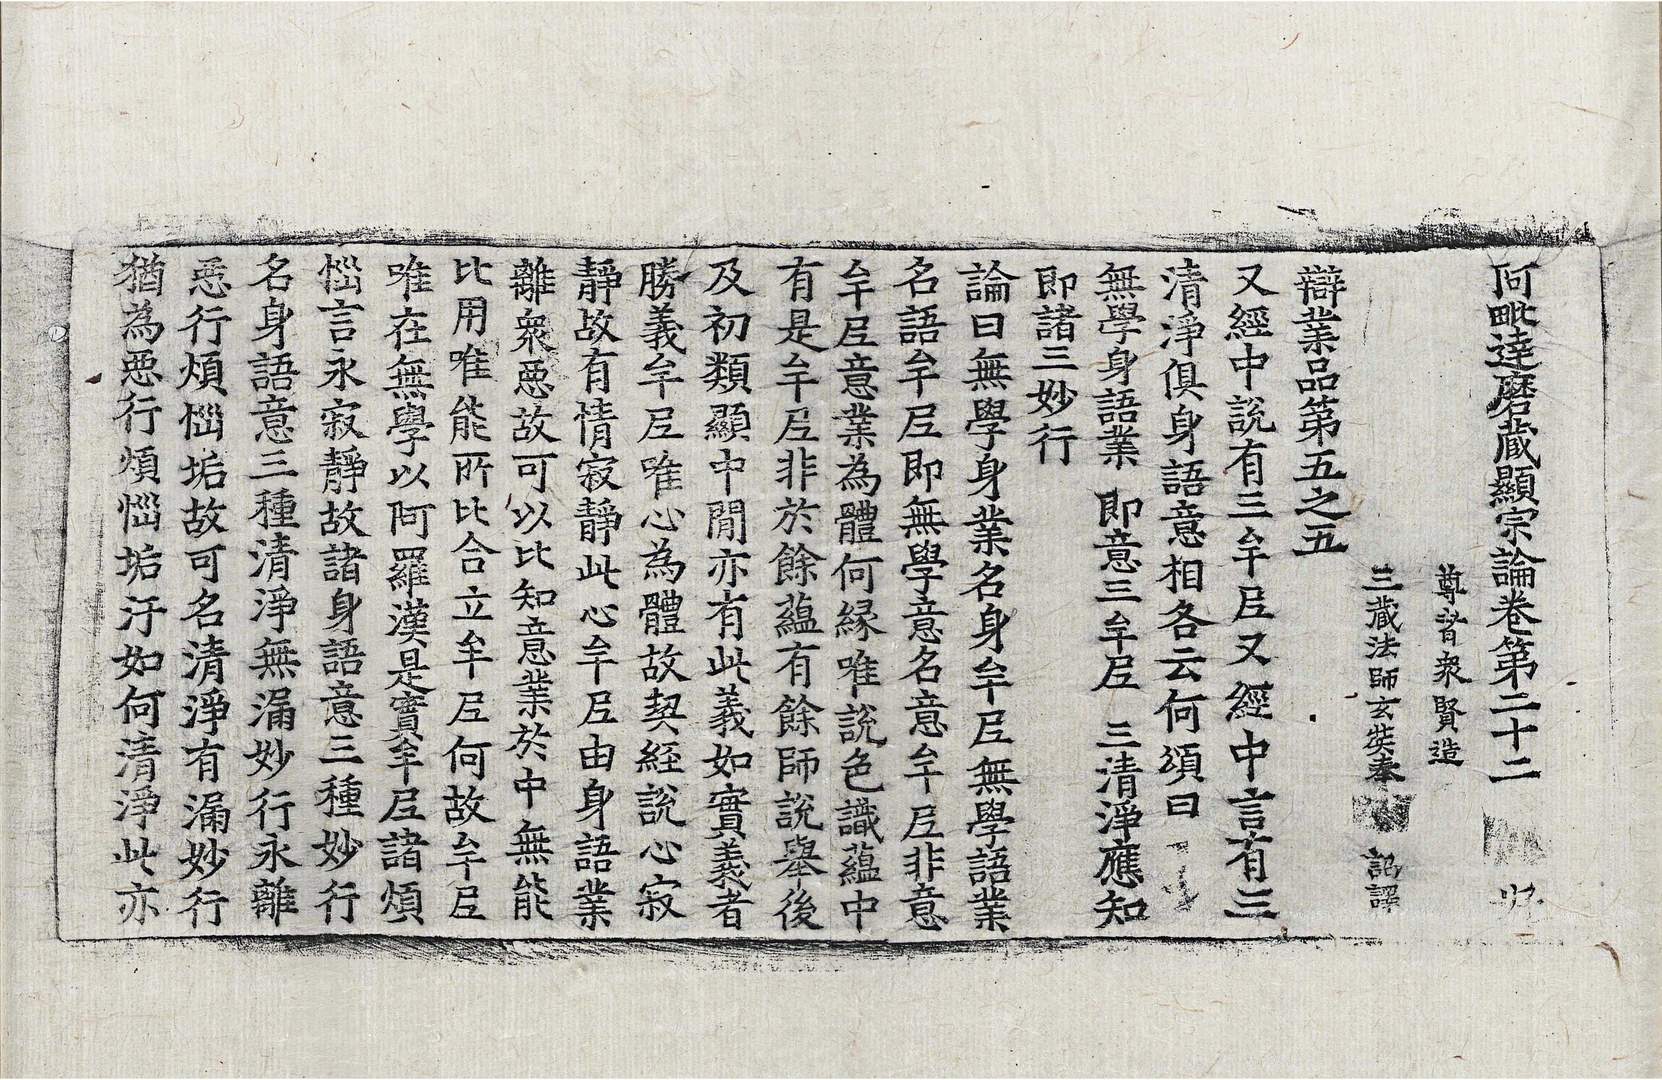 阿毗達磨藏顯宗論卷第二十二
尊者衆賢造
三藏法師玄奘奉 詔譯
辯業品第五之五
又經中說有三牟尼又經中言有三
清淨俱身語意相各云何頌曰
無學身語業 即意三牟尼 三清淨應知
即諸三妙行
論曰無學身業名身牟尼無學語業
名語牟尼即無學意名意牟尼非意
牟尼意業為體何緣唯說色識蘊中
有是牟尼非於餘蘊有餘師說舉後
及初類顯中閒亦有此義如實義者
勝義牟尼唯心為體故契経說心寂
靜故有情寂靜此心牟尼由身語業
離衆惡故可以比知意業於中無能
比用唯能所比合立牟尼何故牟尼
唯在無學以阿羅漢是實牟尼諸煩
惱言永寂靜故諸身語意三種妙行
名身語意三種清淨無漏妙行永離
惡行煩惱垢故可名清淨有漏妙行
猶為惡行煩惱垢汙如何清淨此亦